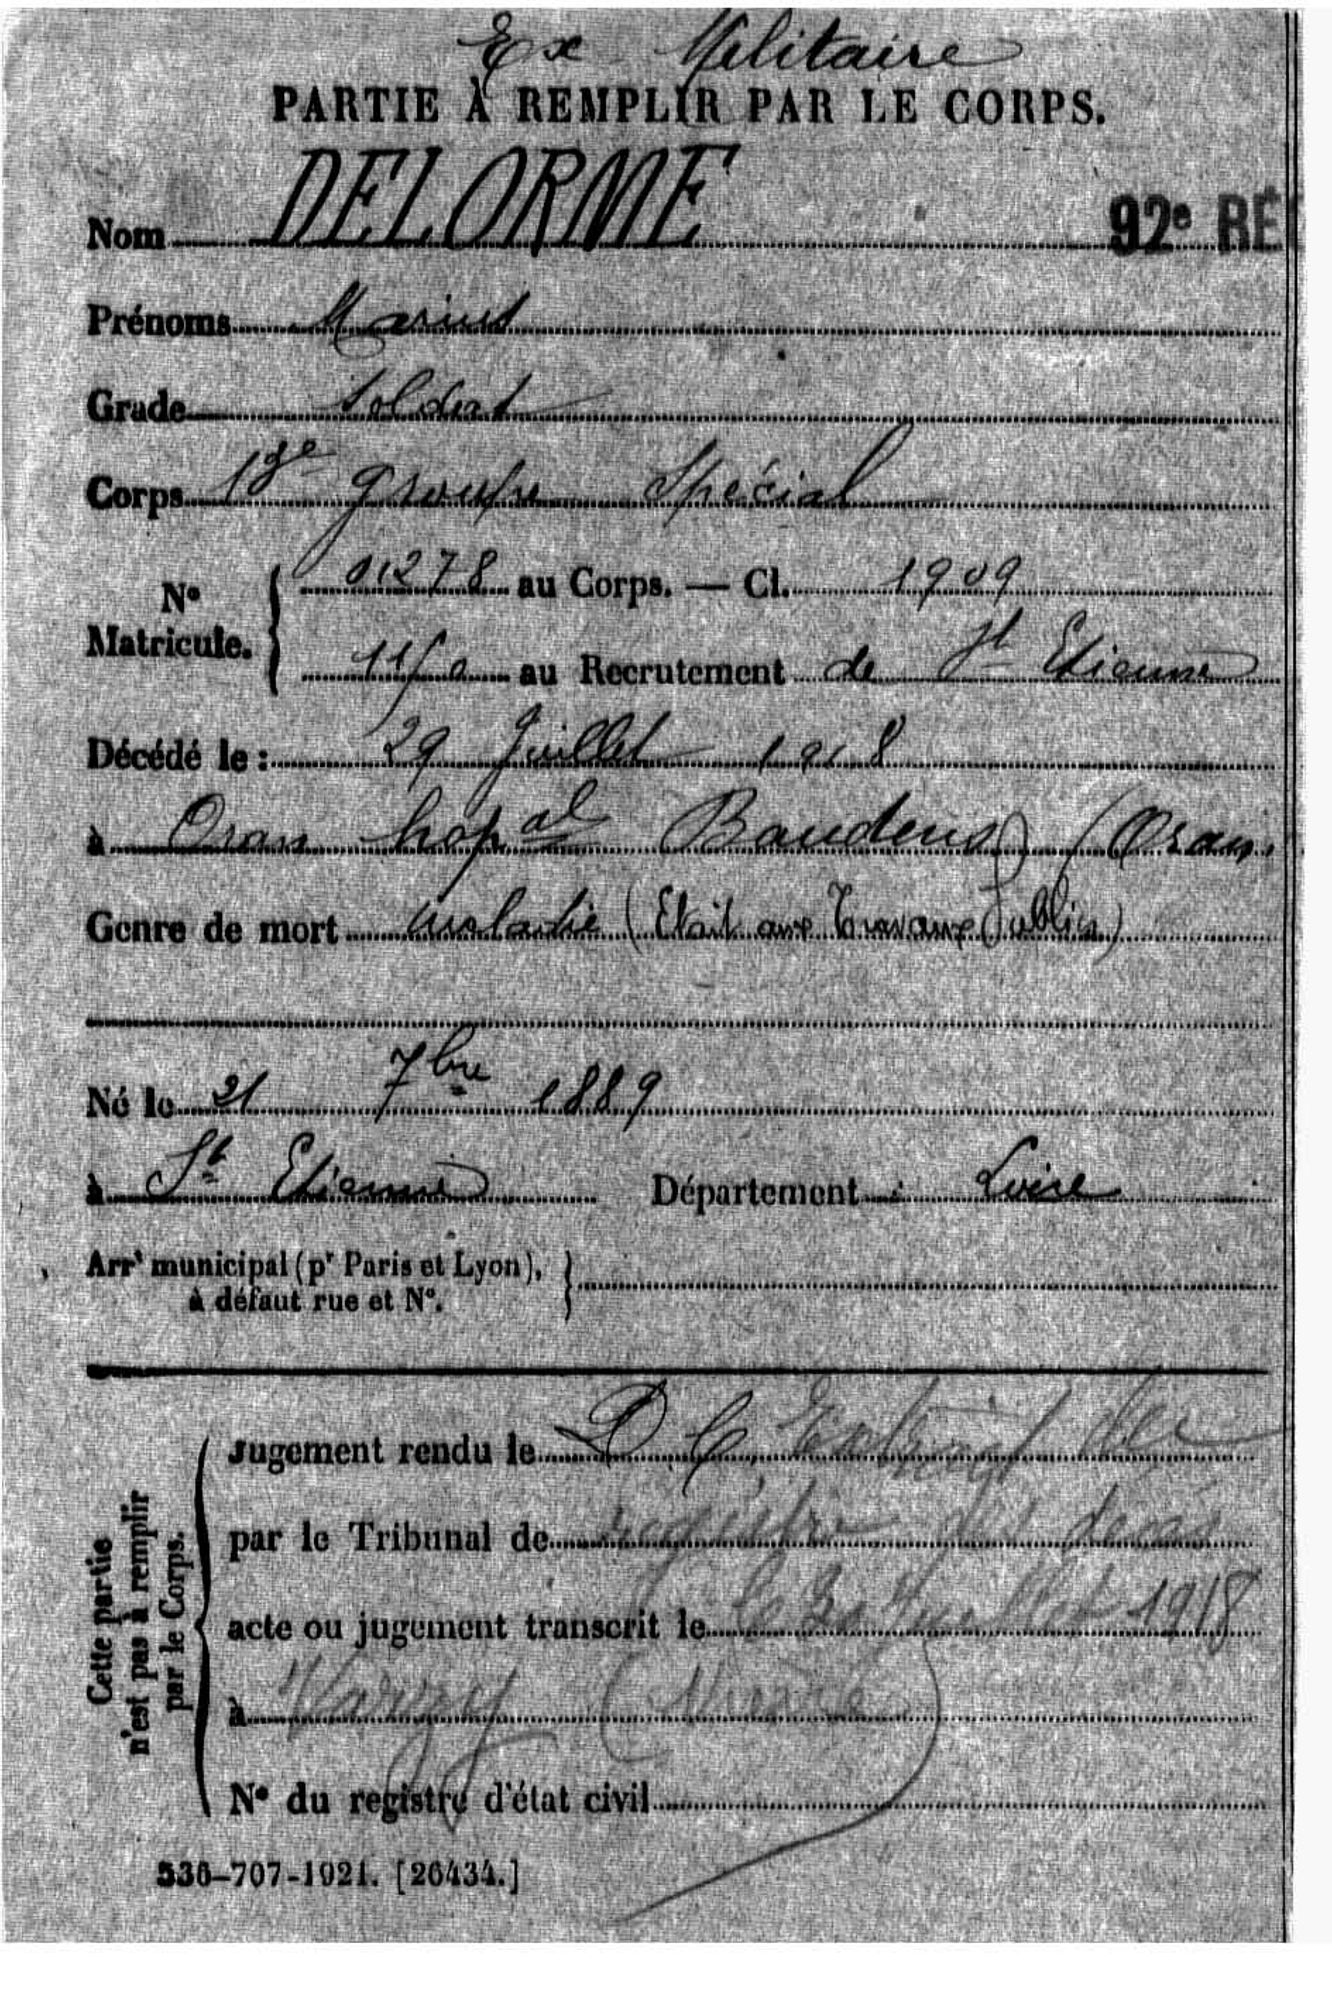 Ex Militaire
PARTIE À REMPLIR PAR LE CORPS.
Nom DELORME 92e RÉ
Prénoms Marius
Grade Soldat
Corps groupe Spécial
N° Matricule. 01278 au Corps. — Cl. 1909
au Recrutement de St Etienne
Décédé le : 29 Juillet 1918
à Oran hopal Baudens (Oran.
Genre de mort maladie (Etait aux Travaux Publics)
Né le 21 7bre 1889
à St Etienne Département : Loire
Arrt municipal (pr Paris et Lyon),
à défaut rue et N°.
Cette partie
n'est pas à remplir
par le Corps.
Jugement rendu le D C Extrait des
par le Tribunal de registre des décès
acte ou jugement transcrit le le 30 Juillet 1918
à
N° du registre d'état civil
536-707-1921. [26434.]